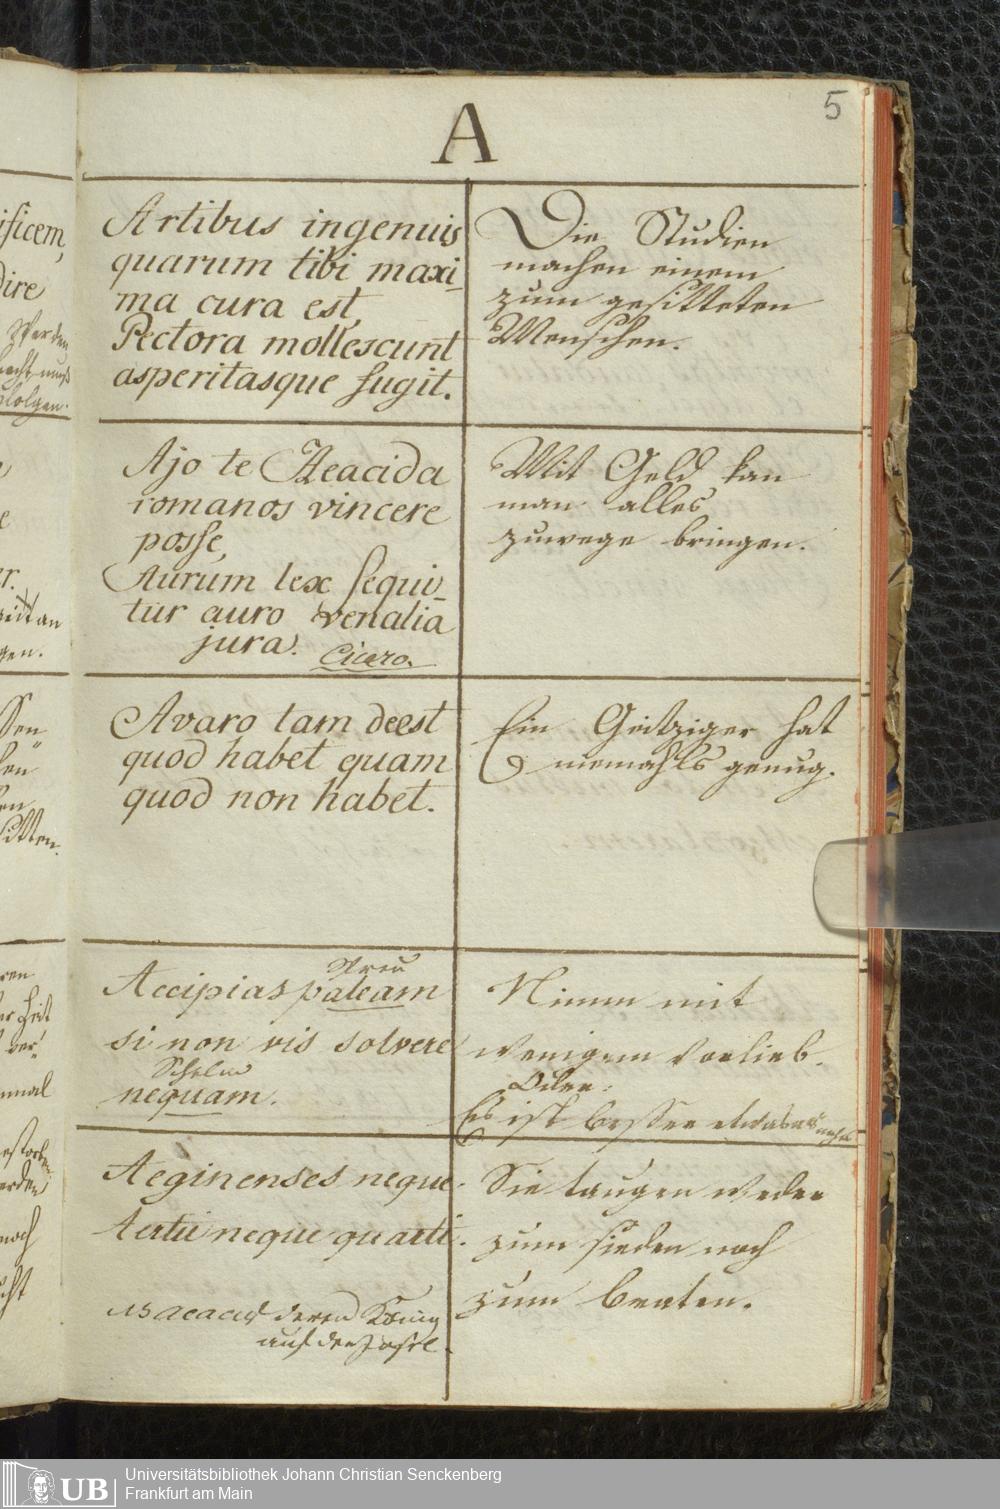 5
A
Artibus ingenuis
quarum tibi maxi-
ma cura est,
Pectora mollescunt
asperitasque fugit.
Die Studien
machen einem
zum gesitteten
Menschen.
Ajo te Aeacida
romanos vincere
posse,
Aurum lex sequi-
tur auro venalia
jura.
Cicero.
Mit Geld kan
man alles
zuwege bringen.
Avaro tam deest
quod habet quam
quod non habet.
Ein Geitziger hat
niemahls genug.
Spreu
Accipias paleam
si non vis solvere
Schelm
nequam.
Nimm mit
wenigem vorlieb.
Oder:
Es ist besser etwas als nichts
Aeginenses neque
tertii neque quarti.
deren König
auf der Insel.
Sie taugen weder
zum sieden noch
zum braten.
UB
Universitätsbibliothek Johann Christian Senckenberg
Frankfurt am Main